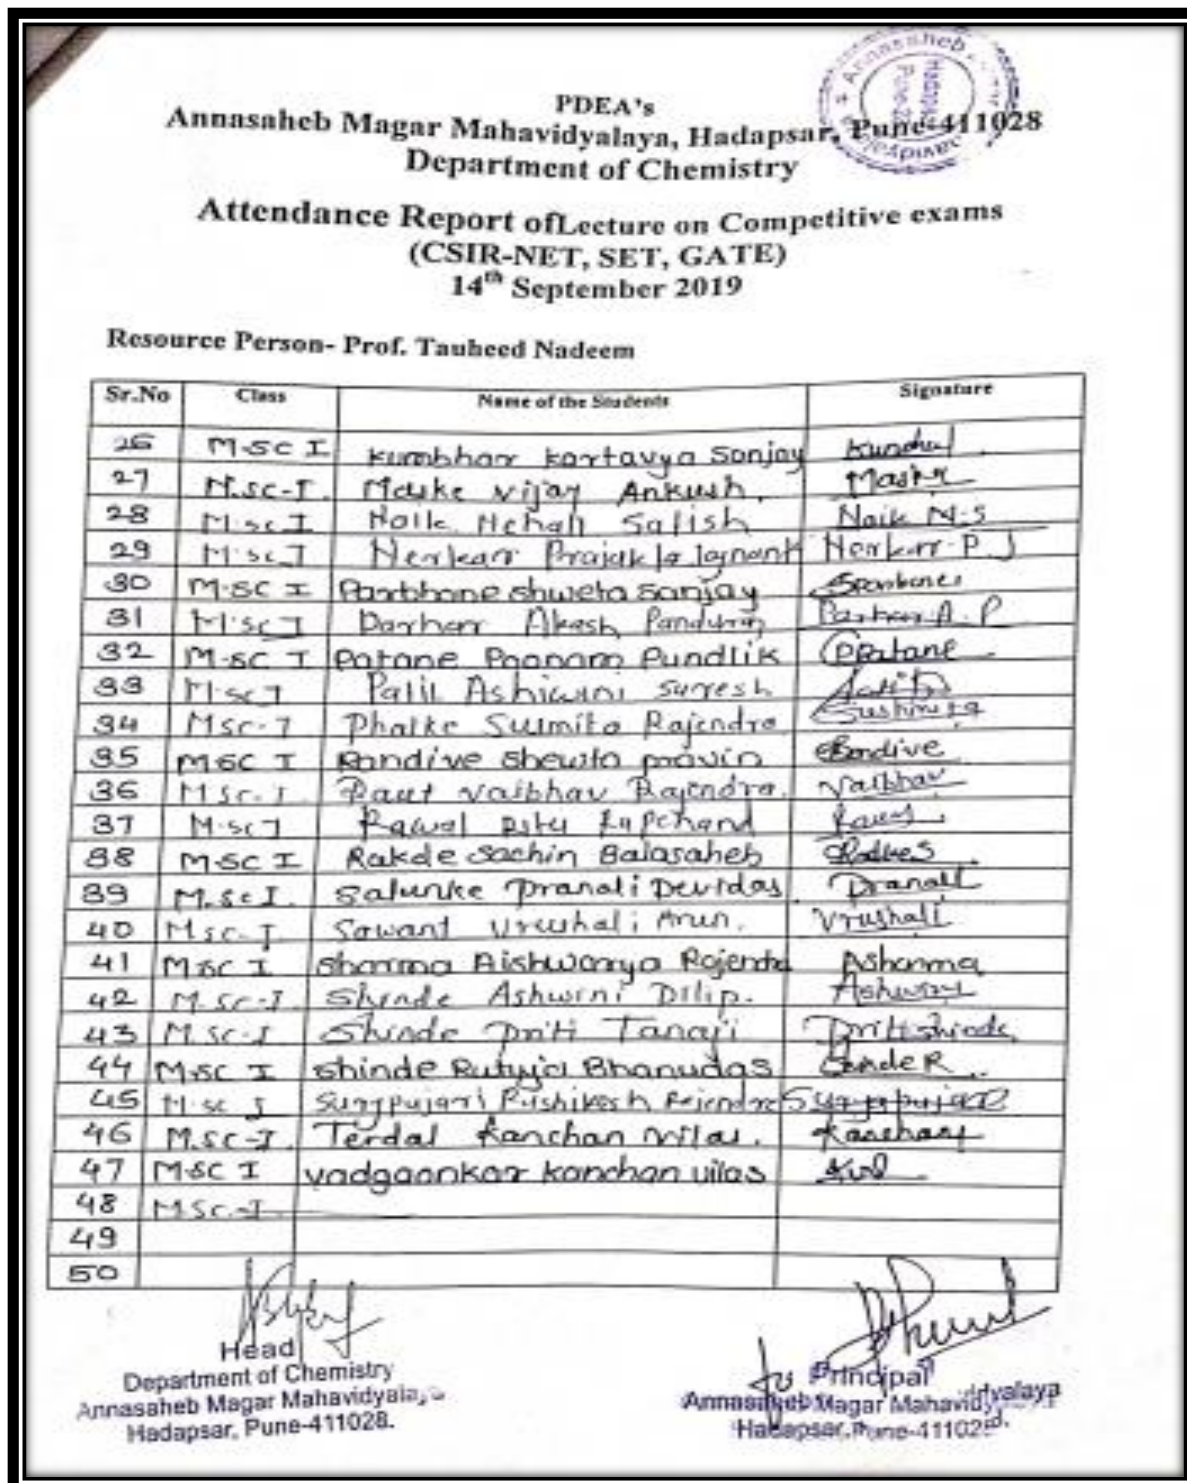 Annasaheb
Hadapsar
Pune-28
PDEA's
Annasaheb Magar Mahavidyalaya, Hadapsar, Pune-411028
Department of Chemistry
Attendance Report ofLecture on Competitive exams
(CSIR-NET, SET, GATE)
14th September 2019
Resource Person- Prof. Tauheed Nadeem
Sr.No Class Name of the Students Signature
26 M.SC I Kumbhar Kartavya Sanjay
27 M.SC-I. Maske Vijay Ankush.
28 M.SC I Naik Nehali Satish Naik N.S
29 M.SC I Nerkarr Nerkarr P J
30 M.SC I Parbhane Shweta Sanjay
31 M.SC I Akash
32 M.SC I Patane Poonam Pundlik PPatane
33 M.SC I Patil Ashiwini Suresh
34 MSC-I Phalke Susmita Rajendra Sushmita
35 MSC I Randive Shewta pravin
36 MSC-I. Raut Vaibhav Rajendra. Vaibhav
37 M.SC I Rawal
38 M.SC I Rakde Sachin Balasaheb
39 M.SC I. Salunke Pranali Devidas Pranali
40 MSC-I Sawant Vrushali Arun. Vrushali
41 MSC I Sharma Aishwarya Rajendra Asharma
42 M.SC-I. Shinde Ashwini Dilip. Ashwini
43 M.SC-I Shinde Priti Tanaji Pritishinde
44 M.SC I Shinde Rutuja Bhanudas
45 M.SC I Rushikesh Rajendra
46 M.SC-I. Terdal Kanchan Vilas. Kanchan
47 M.SC I Vadgaonkar Kanchan Vilas
48 MSC-I
49
50
Head
Department of Chemistry
Annasaheb Magar Mahavidyalaya
Hadapsar, Pune-411028.
Principal
Annasaheb Magar Mahavidyalaya
Hadapsar, Pune-411028.